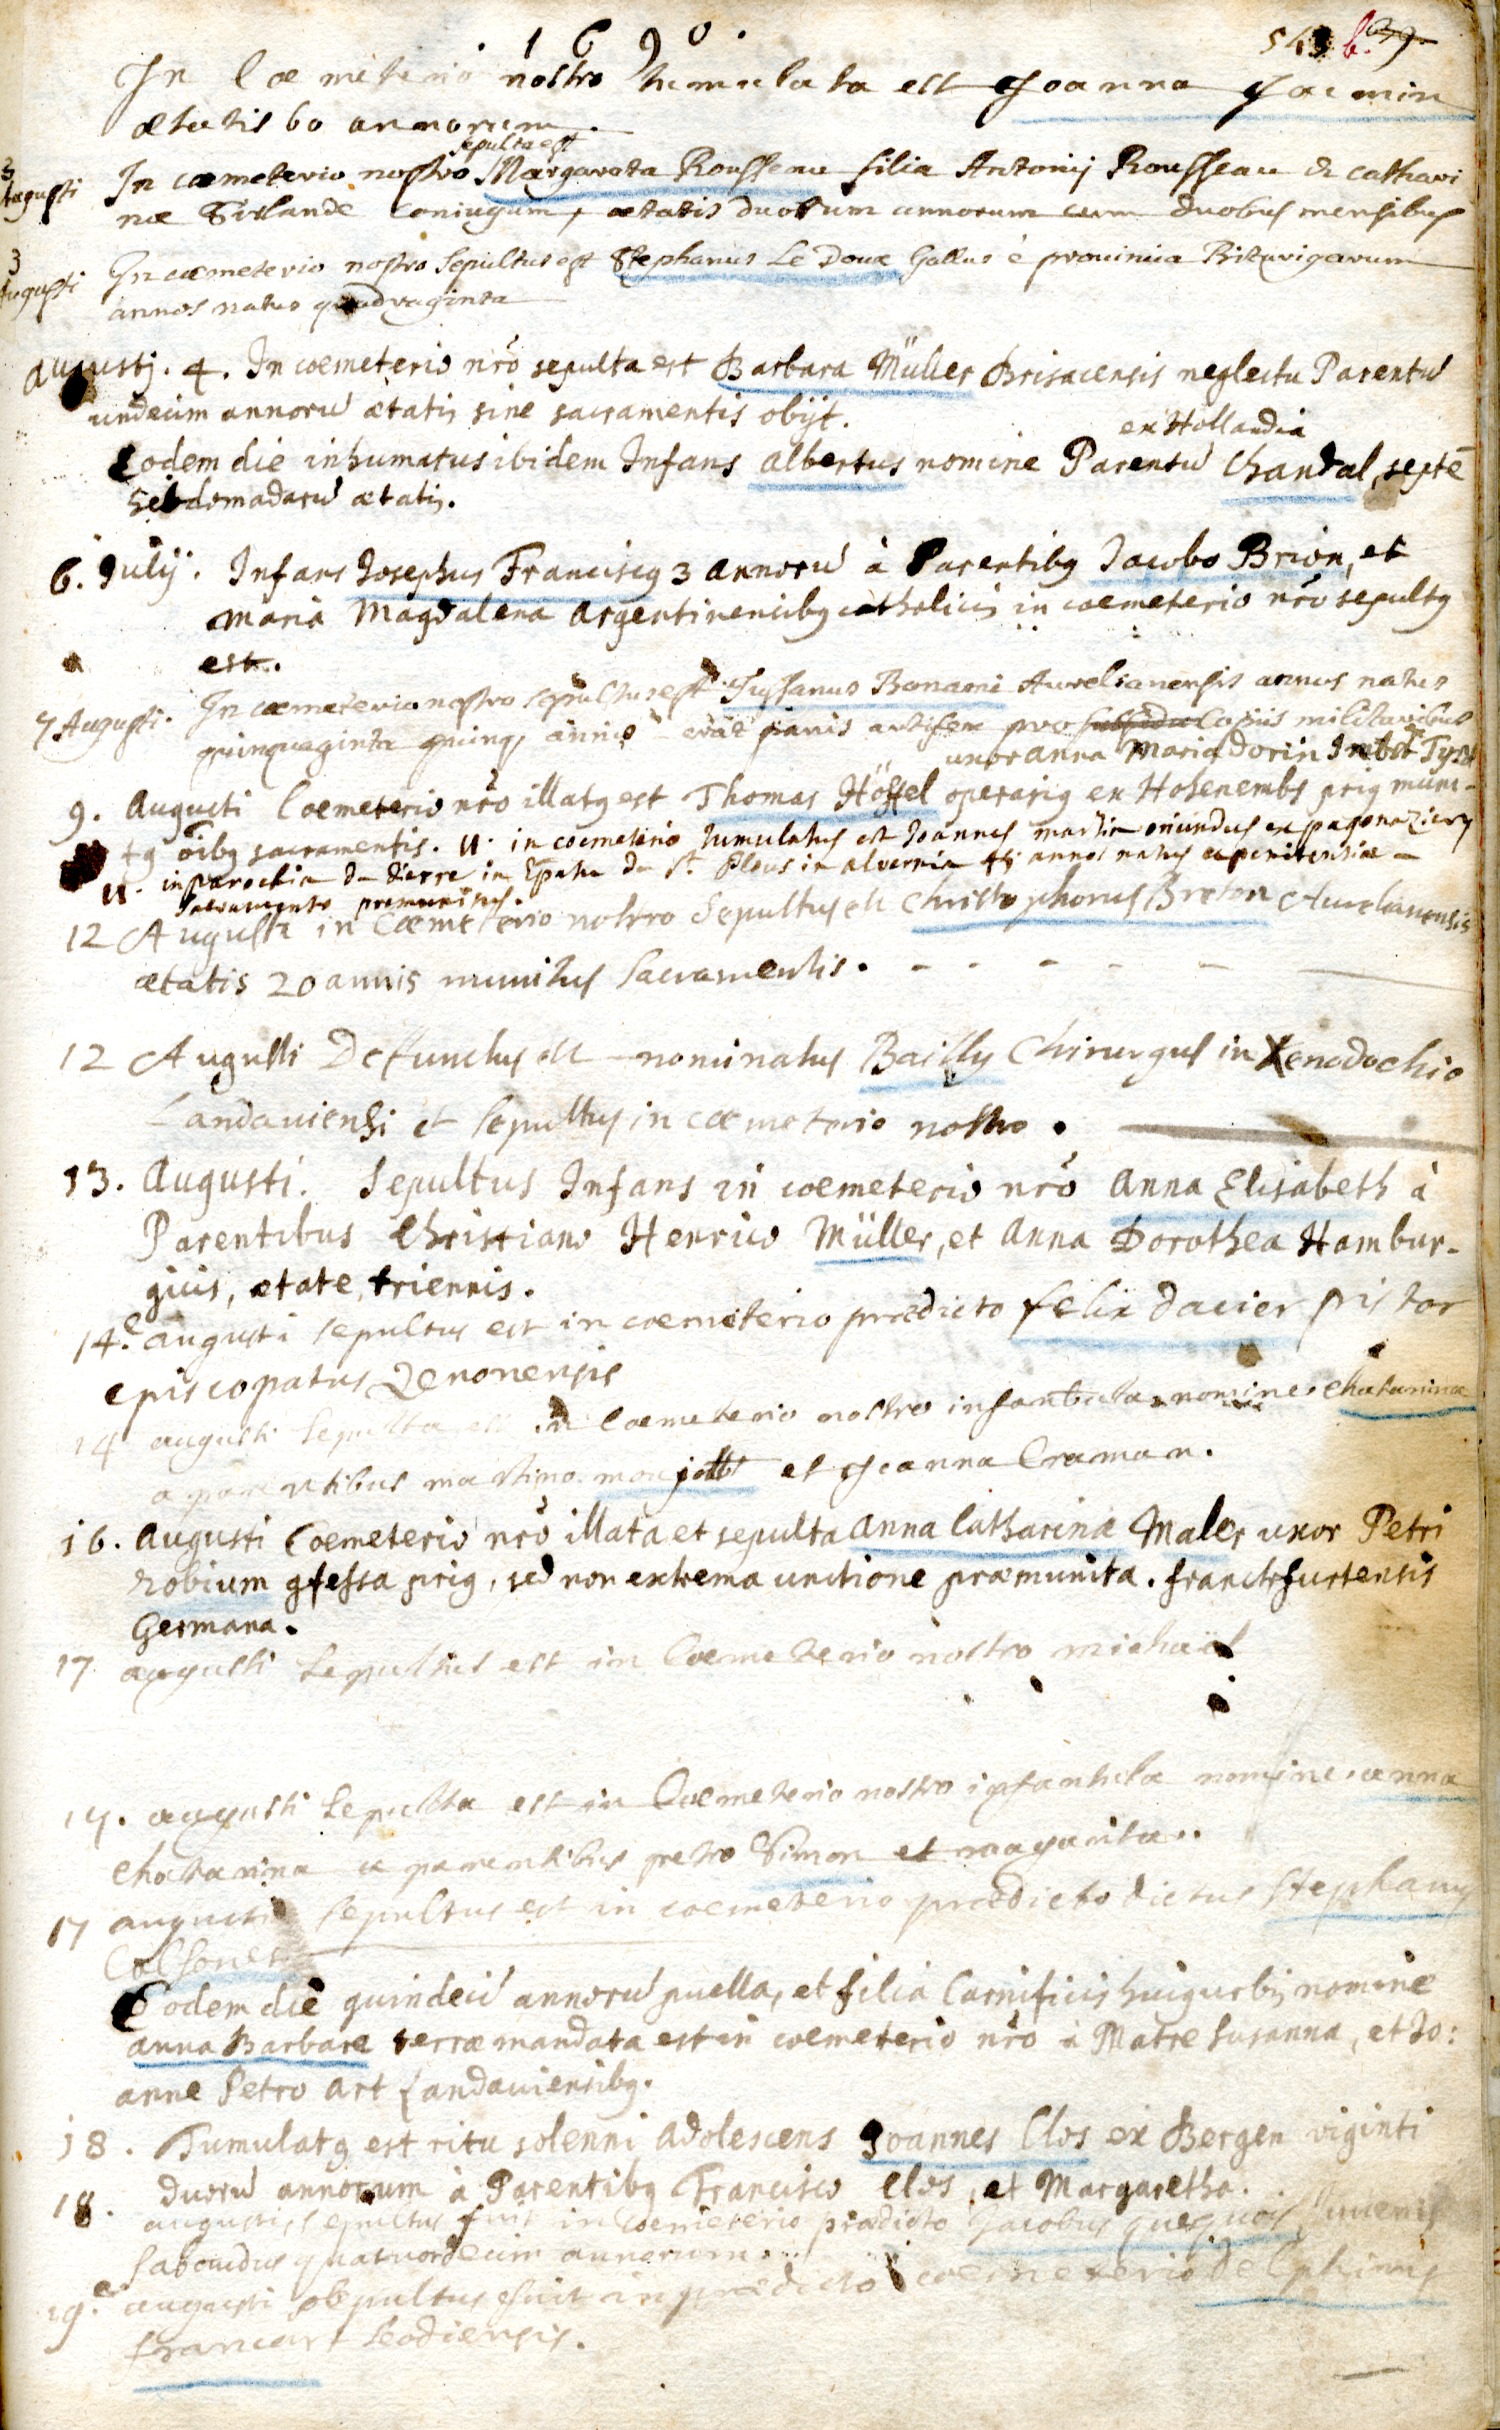 1690.
543 b. 39.
In Coemeterio nostro tumulata est Joanna Jacmin
ætatis 60 annorum.
sepulta est
3 Augusti In cœmeterio nostro Margareta Rousseau filia Antonij Rousseau & cathari
næ Sirlande coniugum, ætatis duorum annorum cum duobus mensibus
3 Augusti In cœmeterio nostro sepultus est Stephanus Le Doux Gallus è prouincia Biturigarum
annos natus quadraginta
Augustj. 4. In coemeterio nr̃o sepulta est Barbara Müller Brisacensis neglectu Parentũ
undecim annorũ ætatis sine sacramentis obijt.
ex Hollandia
Eodem die inhumatus ibidem Infans Albertus nomine Parentũ Chandal, septẽ
hebdomadarũ ætatis.
6. Julij. Infans Josephus Franciscq 3 annorũ à Parentibq Jacobo Brion, et
Maria Magdalena Argentinensibq catholicis in coemeterio nr̃o sepultq
est.
7 Augusti. In cœmeterio nostro sepultus est Jussanus Bonami Aurelianensis annos natus
quinquaginta quinq, annis erat panis artifex pro copiis militaribus
uxor Anna Maria Dorin Imbst Tyrol
9. Augusti Coemeterio nr̃o illatq est Thomas Höffel operariq ex Hohenembs priq muni-
tq oĩbq sacramentis. 11. in coemeterio tumulatus est Joannes martin oriundus ex pago naziery
11. in parochia de dierre in Epatu de St. Flous in alvernia 45 annos natus ac penitentiæ
Sacramento premunitus.
12 Augusti in Cœmeterio nostro Sepultus est Christophorus Breton Aurelianensis
ætatis 20 annis munitus Sacramentis.
12 Augusti Defunctus est nominatus Bailly Chirurgus in Xenodochio
Landaviensi et sepultus in cœmeterio nostro.
13. Augusti. Sepultus Infans in coemeterio nr̃o Anna Elisabeth à
Parentibus Christiano Henrico Müller, et Anna Dorothea Hambur-
gicis, ætate triennis.
14.e augusti sepultus est in coemeterio prædicto felix dacier pistor
episcopatus Zenonensis
14 augusti Sepulta est in Coemeterio nostro infantula nomine chatarina
a parentibus martino monjott et Jeanna Craman.
16. Augusti Coemeterio nr̃o illata et sepulta Anna Catharinæ Maler uxor Petri
robium 9fessa priq, sed non extrema unctione præmunita. francksurtensis
Germana.
17 augusti Sepultus est in Coemeterio nostro michaël
17. augusti Sepulta est in Coemeterio nostro infantula nomine anna
chatarina a parentibus petro Simon et magarita.
17 augusti sepultus est in coemeterio prædicto dictus Stephanus
Eodem die quindecĩ annorũ puella, et filia Carnificis huiq urbis nomine
Anna Barbara terræ mandata est in coemeterio nr̃o à Matre Susanna, et Jo:
anne Petro Art Landaviensibq.
18. Tumulatq est ritu solenni Adolescens Joannes Clos ex Bergen viginti
duorũ annorum à Parentibq Francisco Clos, et Margaretha.
18. augusti sepultus fuit in coemeterio prædicto Jacobus quequois Juvenis
Sabaudus quatuordecim annorum.
19.e augusti sepultus fuit in prædicto coemeterio delphinus
francart Leodiensis.